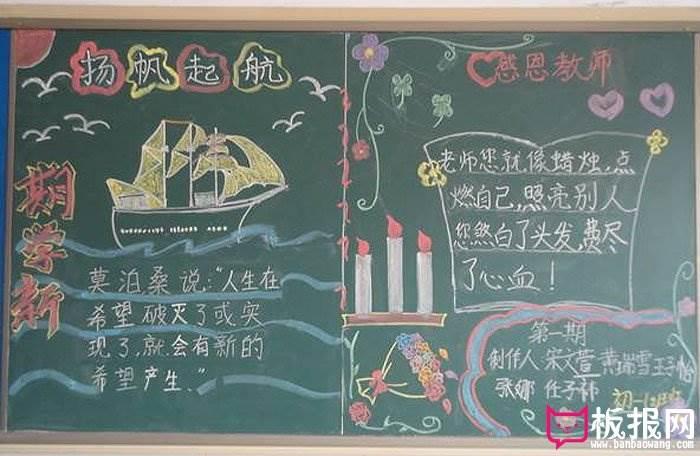 扬帆起航
期学新
莫泊桑说:“人生在
希望破灭了或实
现了,就会有新的
希望产生.”
感恩教师
老师您就像蜡烛,点
燃自己,照亮别人
您熬白了头发,费尽
了心血!
第一期
制作人 宋文萱 黄瑞雪 王子怡
张娜 任子祎
初一
板报网
www.banbaowang.com